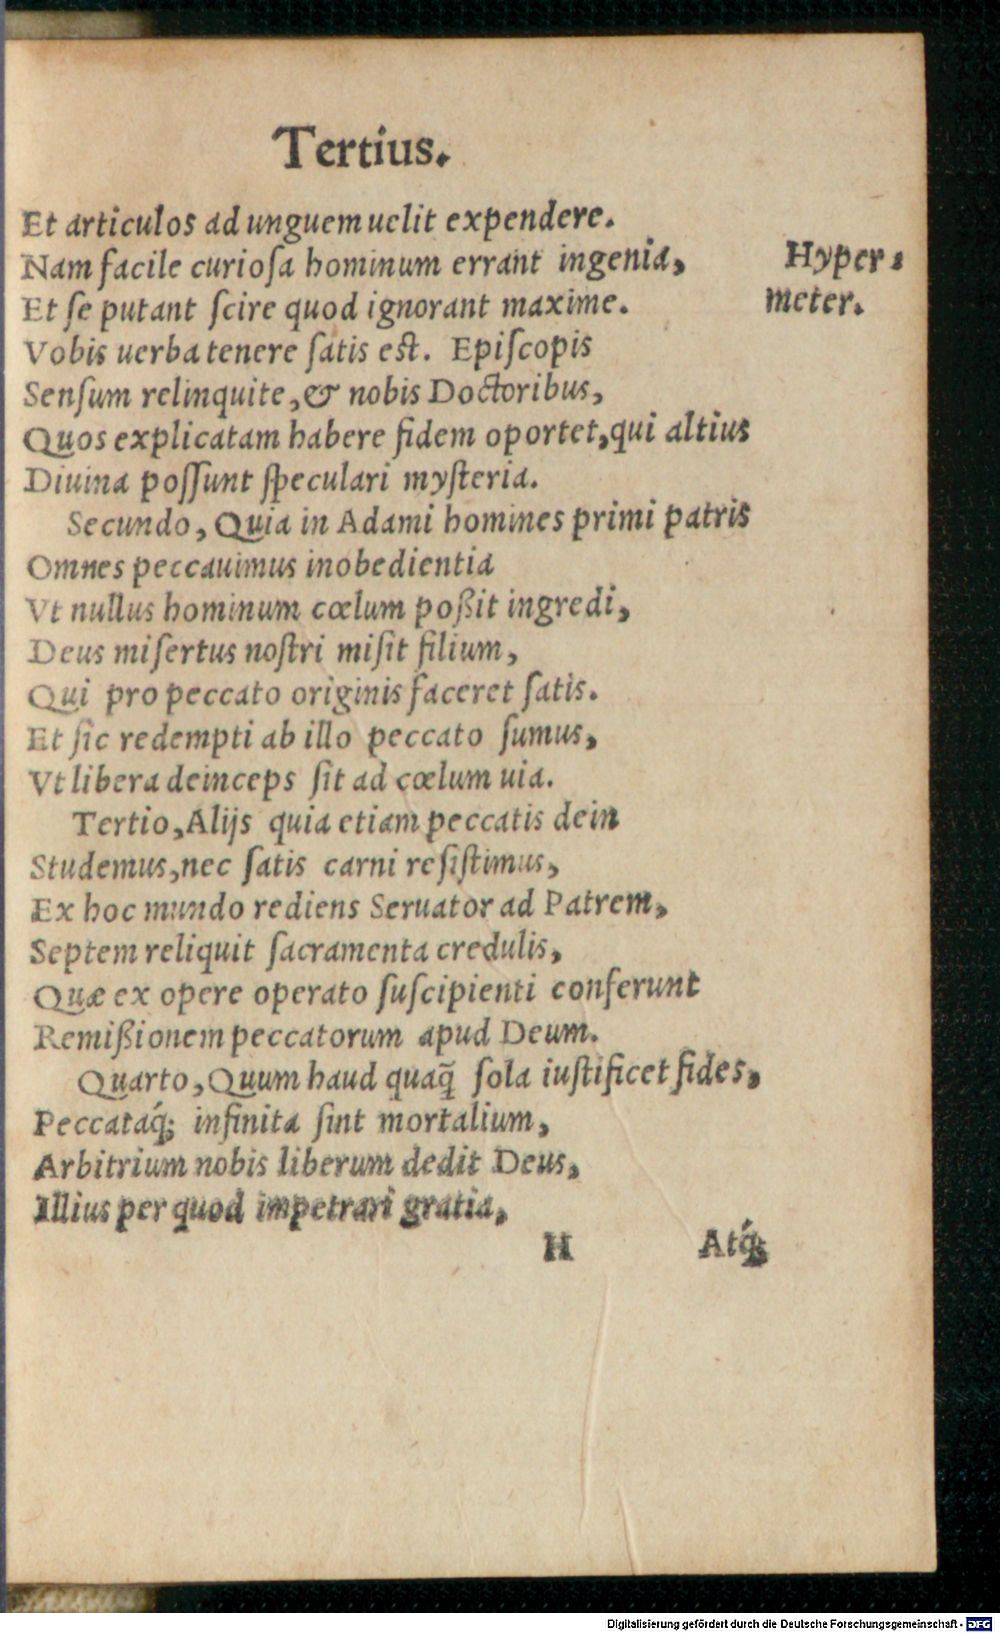 Tertius.
Et articulos ad unguem uelit expendere.
Nam facile curioſa hominum errant ingenia,
Hyper⸗
meter.
Et ſe putant ſcire quod ignorant maxime.
Vobis uerba tenere ſatis eſt. Epiſcopis
Senſum relinquite, & nobis Doctoribus,
Quos explicatam habere fidem oportet, qui altius
Diuina poſſunt ſpeculari myſteria.
Secundo, Quia in Adami homines primi patris
Omnes peccauimus inobedientia
Vt nullus hominum cœlum poßit ingredi,
Deus miſertus noſtri miſit filium,
Qui pro peccato originis faceret ſatis.
Et ſic redempti ab illo peccato ſumus,
Vt libera deinceps ſit ad cœlum uia.
Tertio, Alijs quia etiam peccatis dein
Studemus, nec ſatis carni reſiſtimus,
Ex hoc mundo rediens Seruator ad Patrem,
Septem reliquit ſacramenta credulis,
Quæ ex opere operato ſuſcipienti conferunt
Remißionem peccatorum apud Deum.
Quarto, Quum haud quaq̃ ſola iuſtificet fides,
Peccataq́; infinita ſint mortalium,
Arbitrium nobis liberum dedit Deus,
Illius per quod impetrari gratia,
H Atq́;
Digitalisierung gefördert durch die Deutsche Forschungsgemeinschaft - DFG